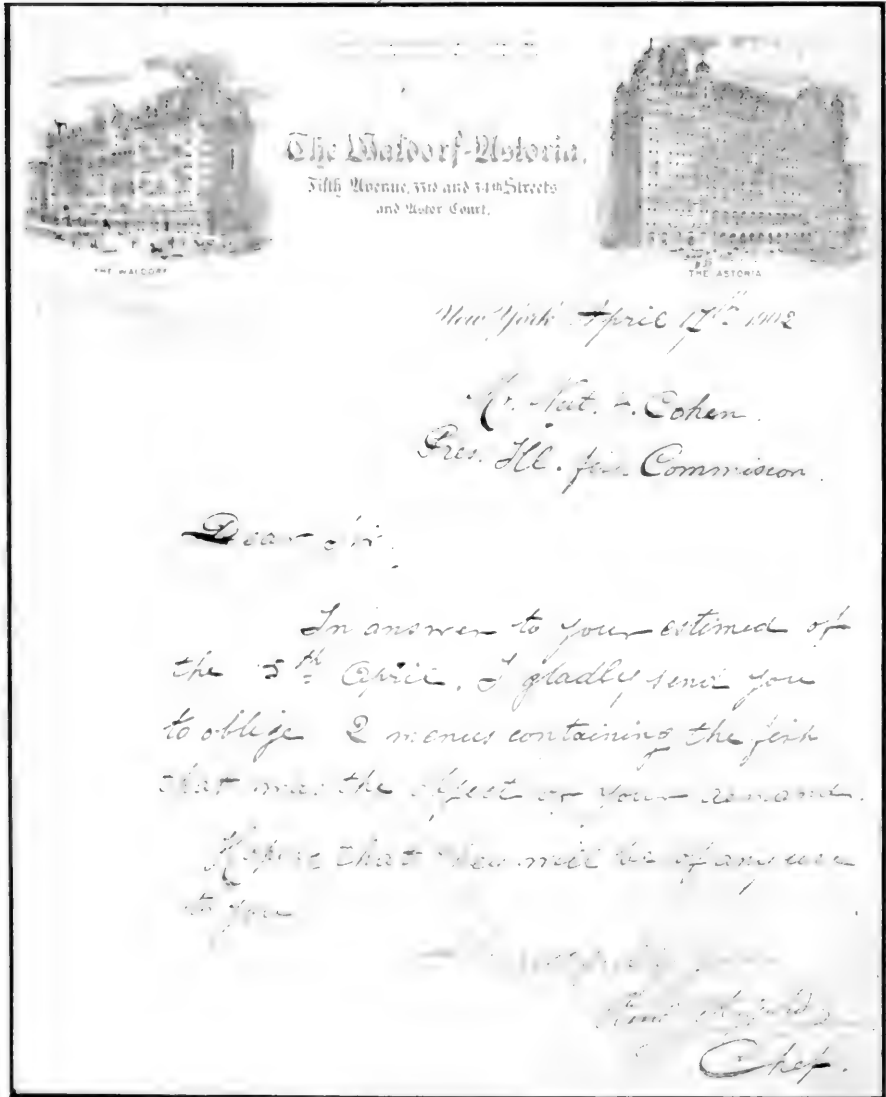 The Waldorf-Astoria.
Fifth Avenue, 33rd and 34th Streets
and Astor Court.
THE WALDORF
THE ASTORIA
New York April 17th 1902
Mr. Nat. H. Cohen.
Pres. Ill. fis. Commision.
Dear Sir.
In answer to your estimed of
the 5th April. I gladly send you
to oblige 2 menus containing the fish
that was the object of your demand.
Hoping that they will be of any use
to you
Chef.